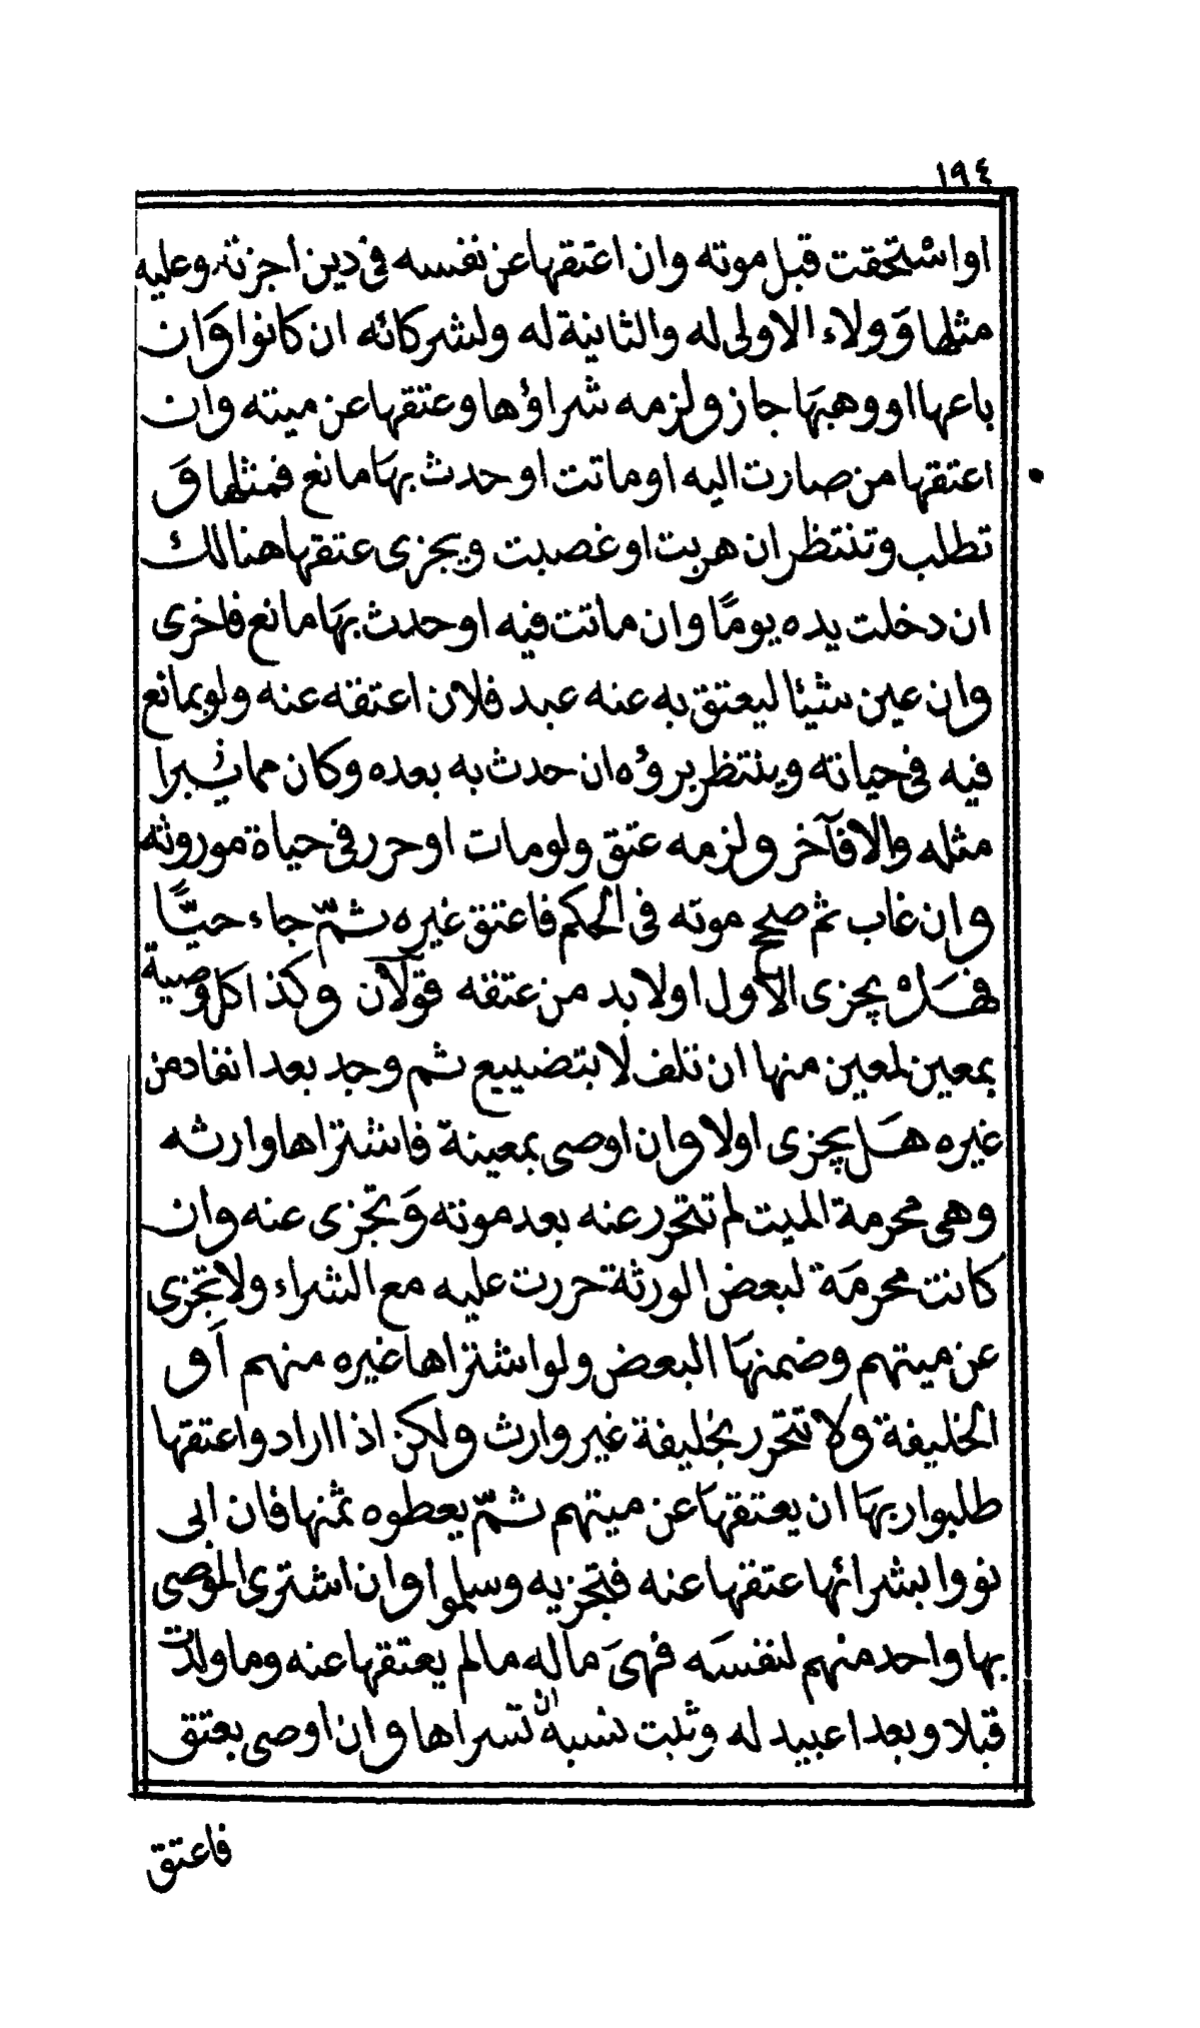 ١٩٤
او استحقت قبل موته وان اعتقها عن نفسه في دين اجزته وعليه
مثلها وَ ولاء الاولى له والثانية له ولشركائه ان كانوا وَان
باعها او وهبهَا جاز ولزمه شراؤها وعتقها عن ميته وان
اعتقها من صارت اليه او ماتت او حدث بهَا مانع فمثلها وَ
تطلب وتنتظر ان هربت او غصبت ويجزى عتقها هنالك
ان دخلت يده يومًا وان ماتت فيه او حدث بهَا مانع فاخرى
وان عين شيئا ليعتق به عنه عبد فلان اعتقه عنه ولو بمانع
فيه في حياته وينتظر برؤه ان حدث به بعده وكان مما يبرا
مثله والا فآخر ولزمه عتق ولو مات او حرر في حياة موروثه
وان غاب ثم صح موته في الحكم فاعتق غيره ثمّ جاء حيًّا
فهَلْ يجزى الاول اولا بد من عتقه قولان وكذا كل وصية
بمعين لمعين منها ان تلف لا بتضييع ثم وجد بعد انفاد من
غيره هَل يجزى اولا وان اوصى بمعينة فاشتراها وارثه
وهى محرمة الميت لم تتحرر عنه بعد موته وَتجزى عنه وان
كانت محرمَة لبعض الورثة حررت عليه مع الشراء ولا تجزى
عن ميتهم وضمنهَا البعض ولو اشتراها غيره منهم اَو
الخليفة ولا تتحرر بخليفة غير وارث ولكن اذا ارادوا عتقها
طلبوا ربهَا ان يعتقهَا عن ميتهم ثمّ يعطوه ثمنها فان ابى
نووا بشرائها عتقها عنه فتجزيه وسلموا وان اشترى الموصى
بها واحد منهم لنفسَه فهىَ ماله ما لم يعتقها عنه وما ولدت
قبلا وبعدا عبيد له وثبت نسبه ان تسراها وان اوصى بعتق
فاعتق